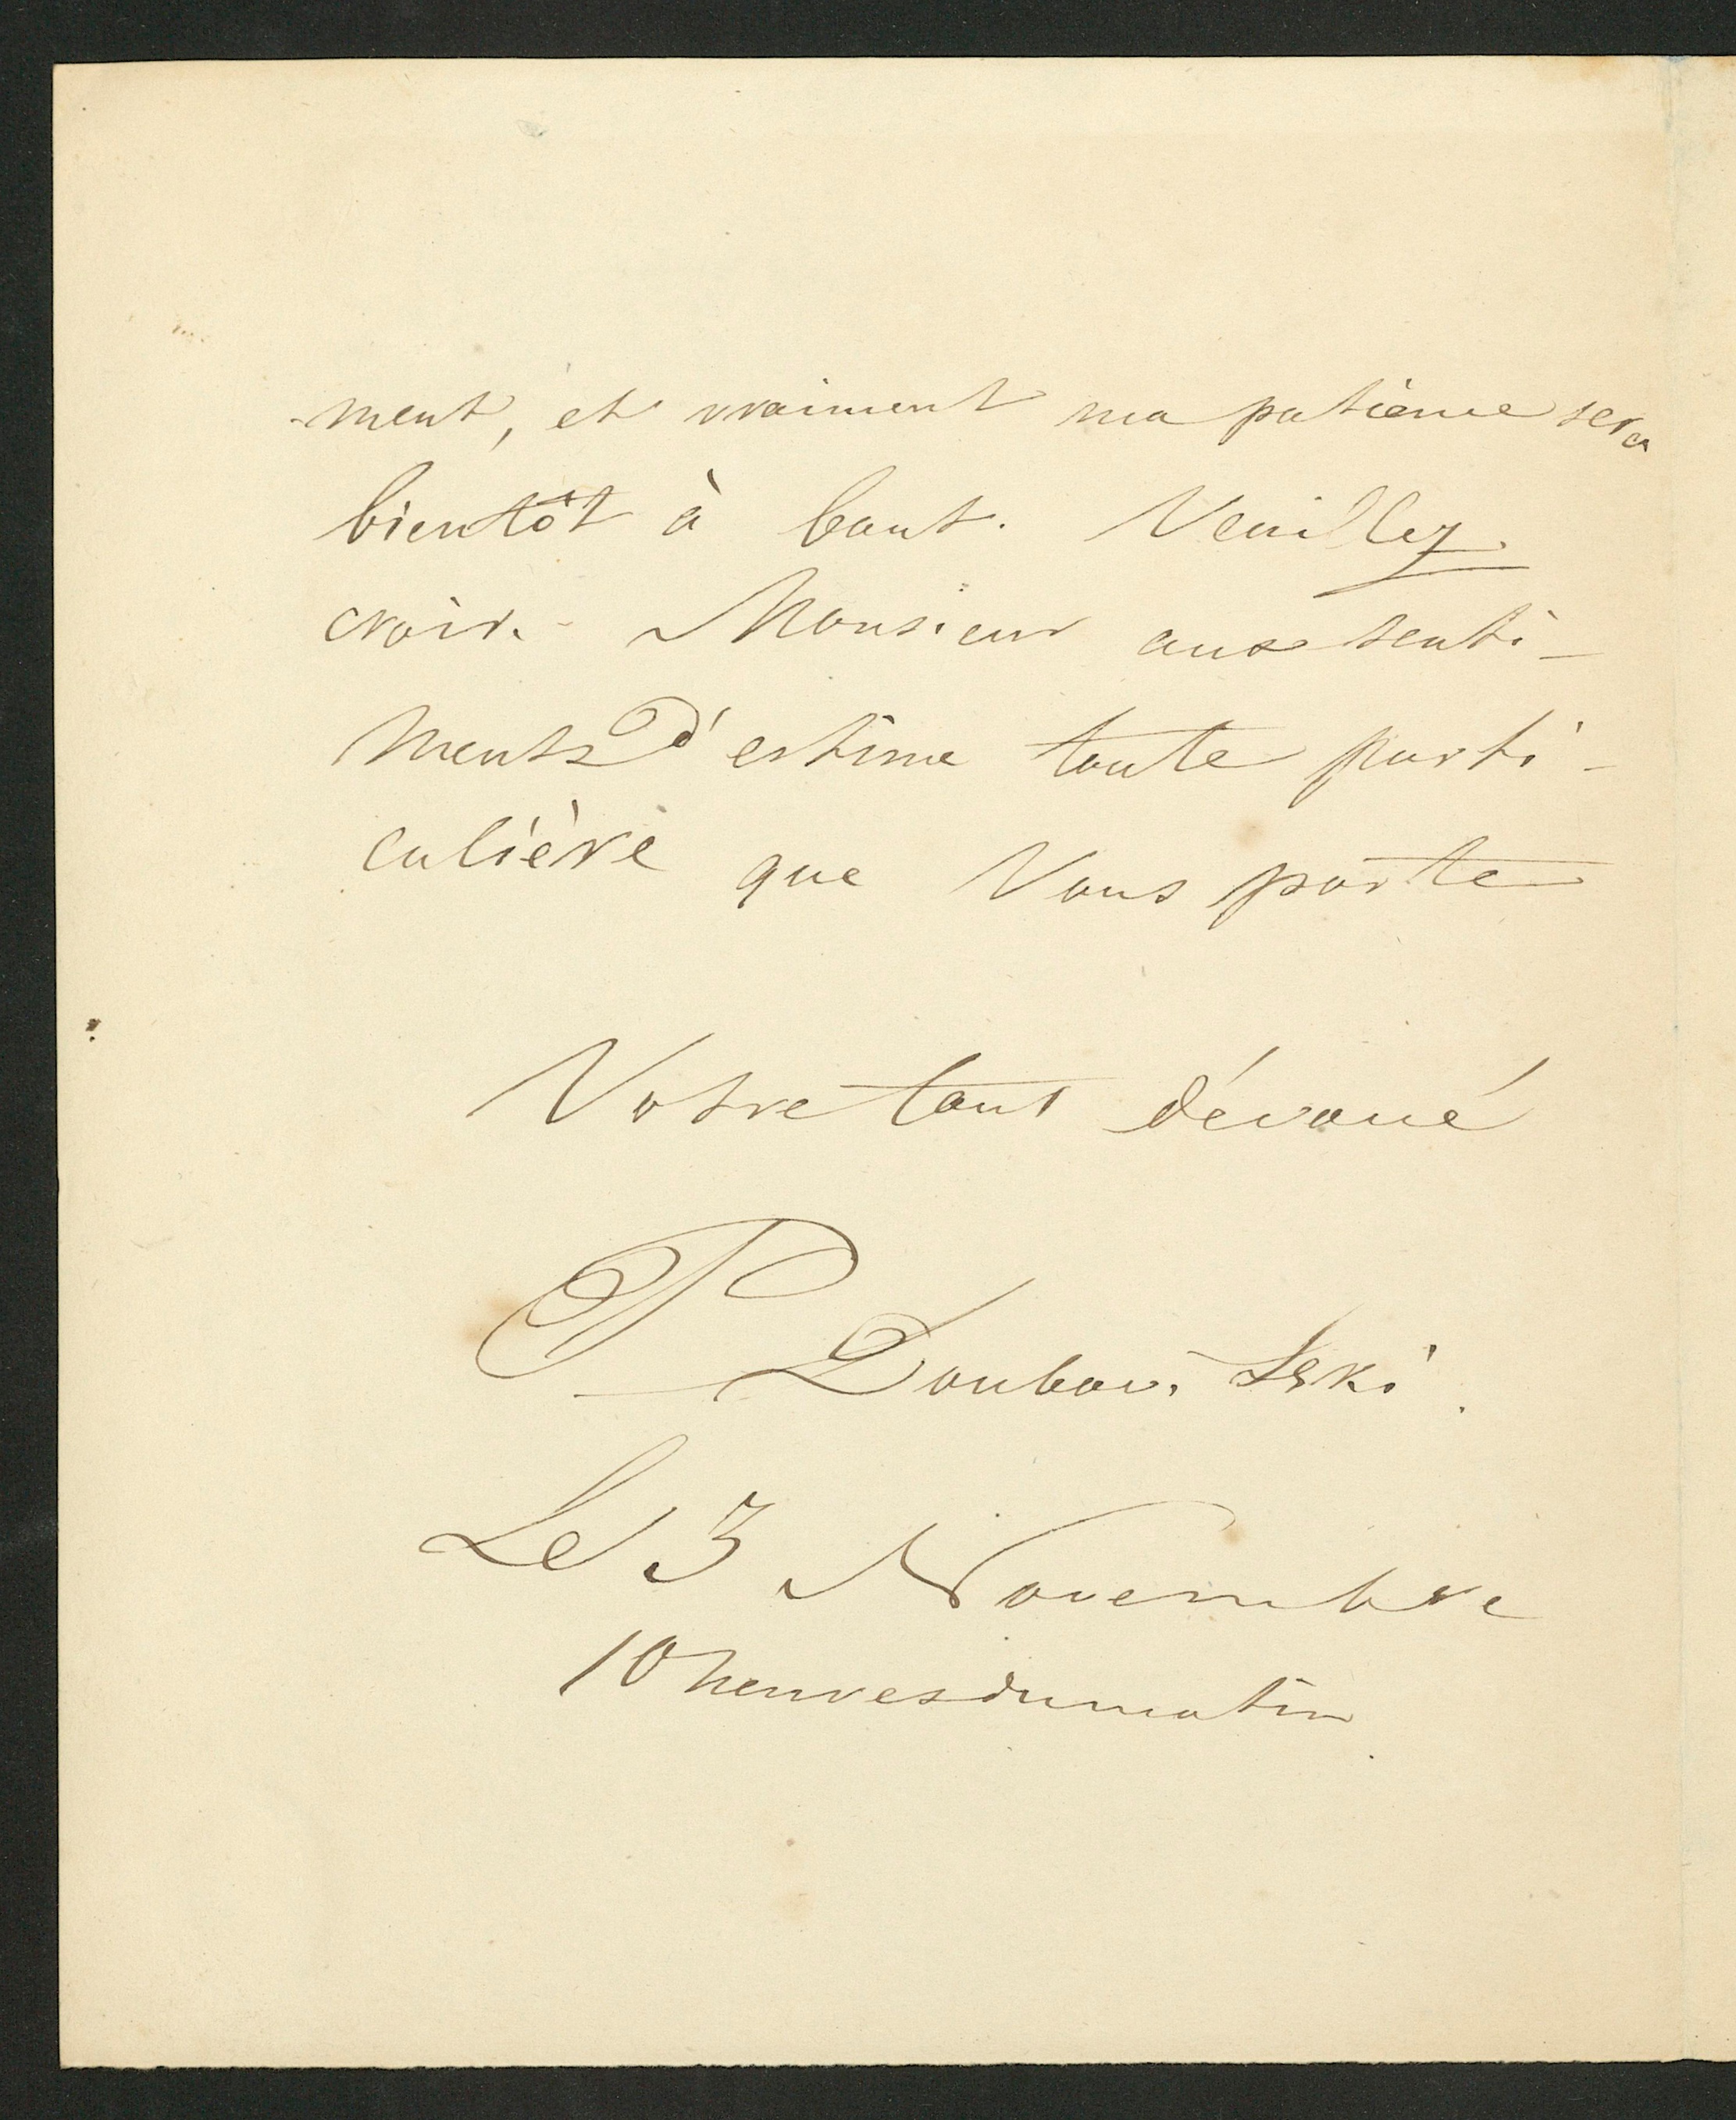 -ment, et vraiment ma patience sera
bientôt à bout. Veuillez
croire Monsieur aux senti-
ments d'estime toute parti-
culière que Vous porte
Votre tout dévoué
P Doubovitski.
Le 3 Novembre
10 heures du matin.